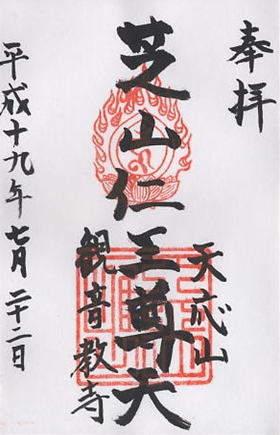 奉拝
天応山
芝山仁王尊天
観音教寺
平成十九年七月二十二日